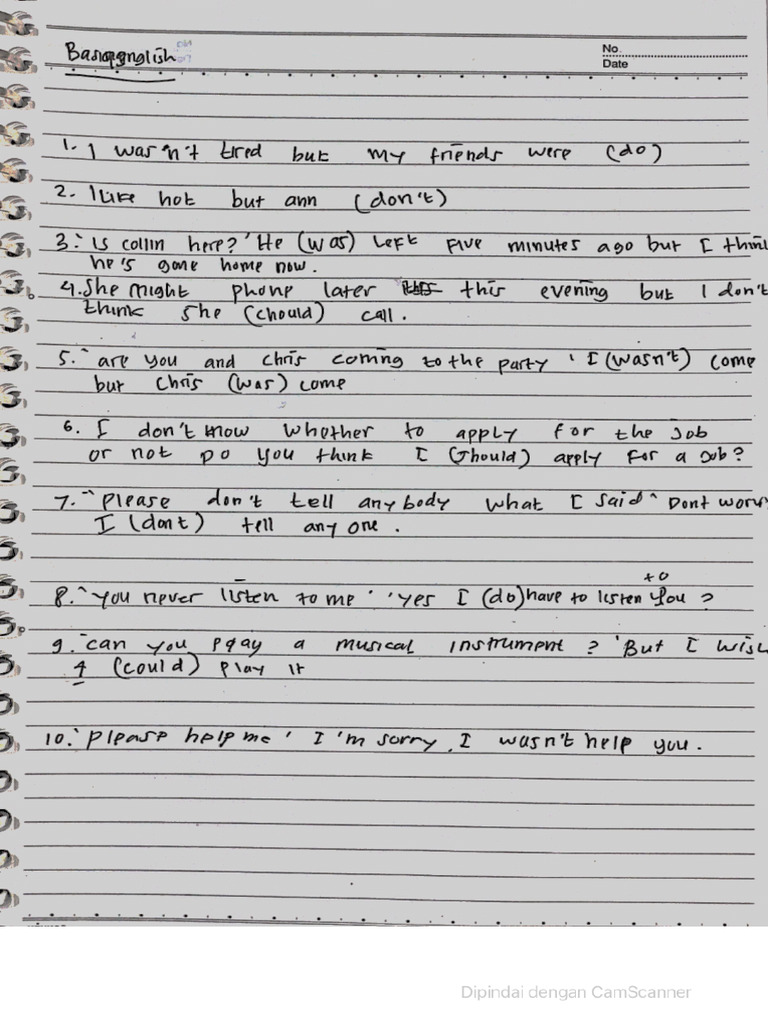 Basic english
No.
Date
1. I wasn't tired but my friends were (do)
2. I like hot but ann (don't)
3. "Is collin here?' He (was) left five minutes ago but I think
he's gone home now.
4. She might phone later this evening but I don't
think she (chould) call.
5. "are you and chris coming to the party ' I (wasn't) come
but chris (was) come
6. I don't know whether to apply for the job
or not Do you think I (should) apply for a job?
7. "please don't tell anybody what I said" Dont worry
I (dont) tell any one.
8. "you never listen to me' 'yes I (do) have to listen to you?
9. "can you play a musical instrument? 'But I wish
I (could) play it
10. "please help me' I'm sorry, I wasn't help you.
Dipindai dengan CamScanner